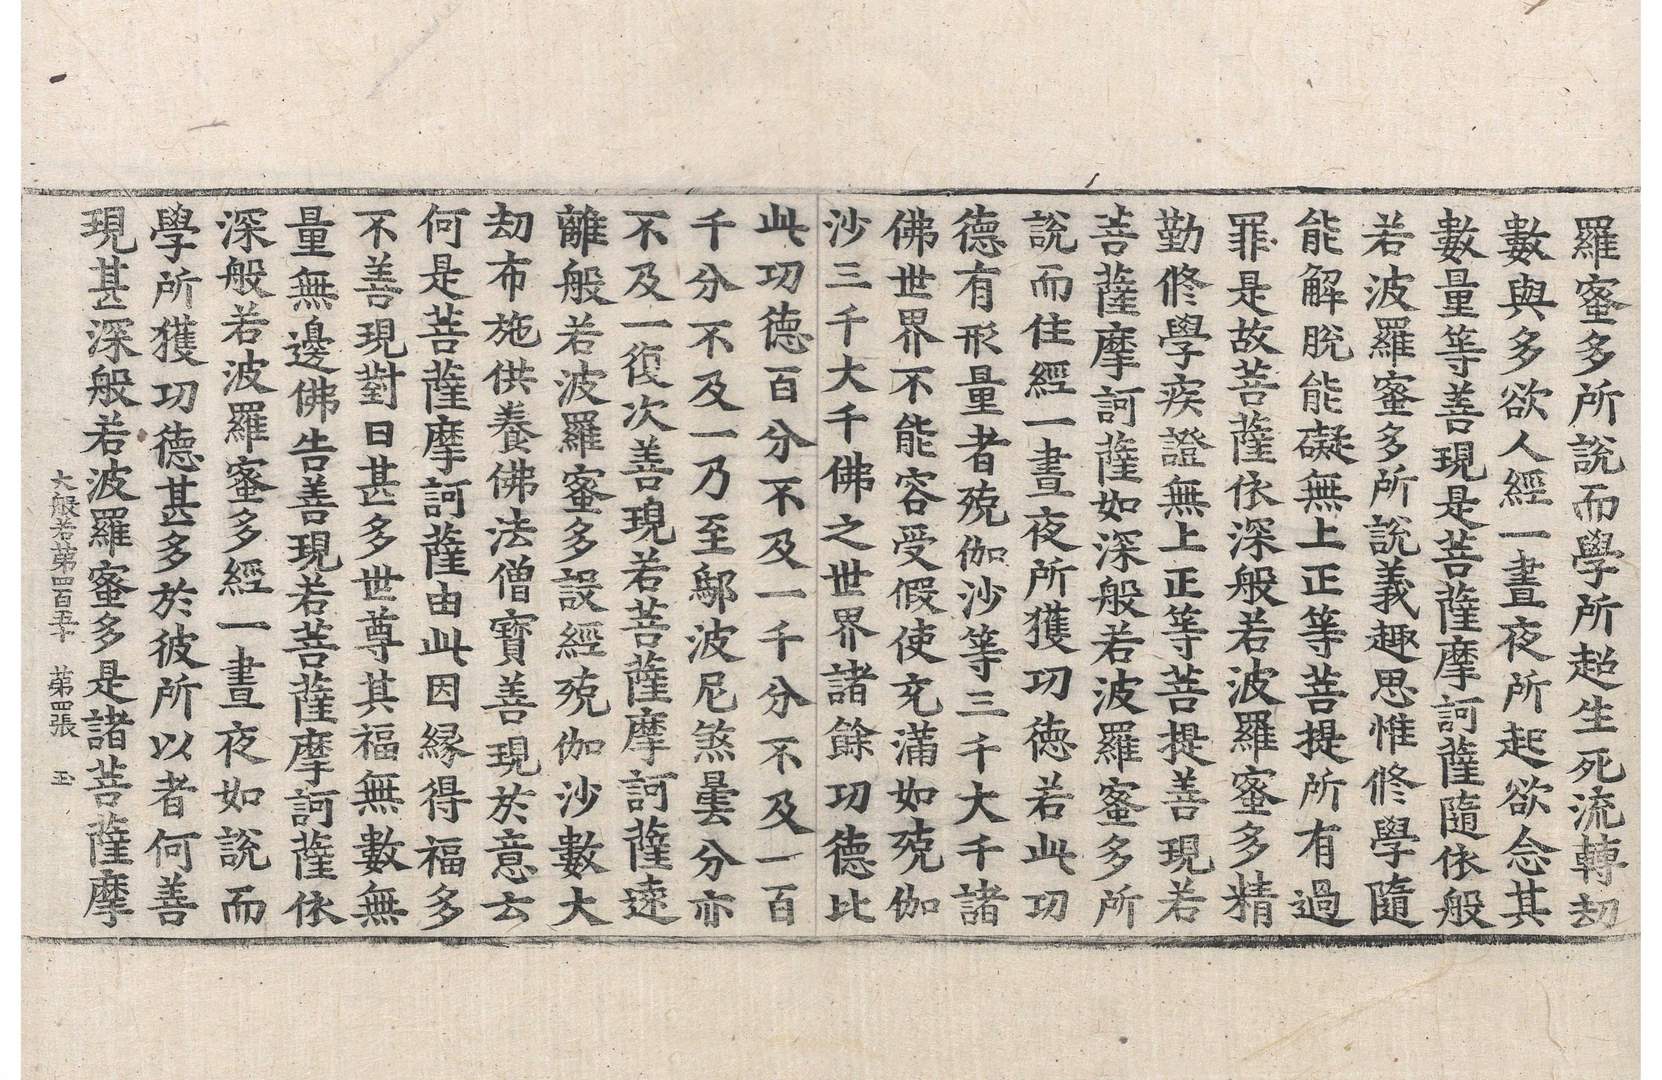 羅蜜多所說而學所超生死流轉劫
數與多欲人經一晝夜所起欲念其
數量等善現是菩薩摩訶薩隨依般
若波羅蜜多所說義趣思惟修學隨
能解脫能礙無上正等菩提所有過
罪是故菩薩依深般若波羅蜜多精
勤修學疾證無上正等菩提善現若
菩薩摩訶薩如深般若波羅蜜多所
說而住經一晝夜所獲功德若此功
德有形量者殑伽沙等三千大千諸
佛世界不能容受假使充滿如殑伽
沙三千大千佛之世界諸餘功德比
此功德百分不及一千分不及一百
千分不及一乃至鄔波尼煞曇分亦
不及一復次善現若菩薩摩訶薩遠
離般若波羅蜜多設經殑伽沙數大
劫布施供養佛法僧寶善現於意云
何是菩薩摩訶薩由此因緣得福多
不善現對曰甚多世尊其福無數無
量無邊佛告善現若菩薩摩訶薩依
深般若波羅蜜多經一晝夜如說而
學所獲功德甚多於彼所以者何善
現甚深般若波羅蜜多是諸菩薩摩
大般若第四百五十　第四張　玉